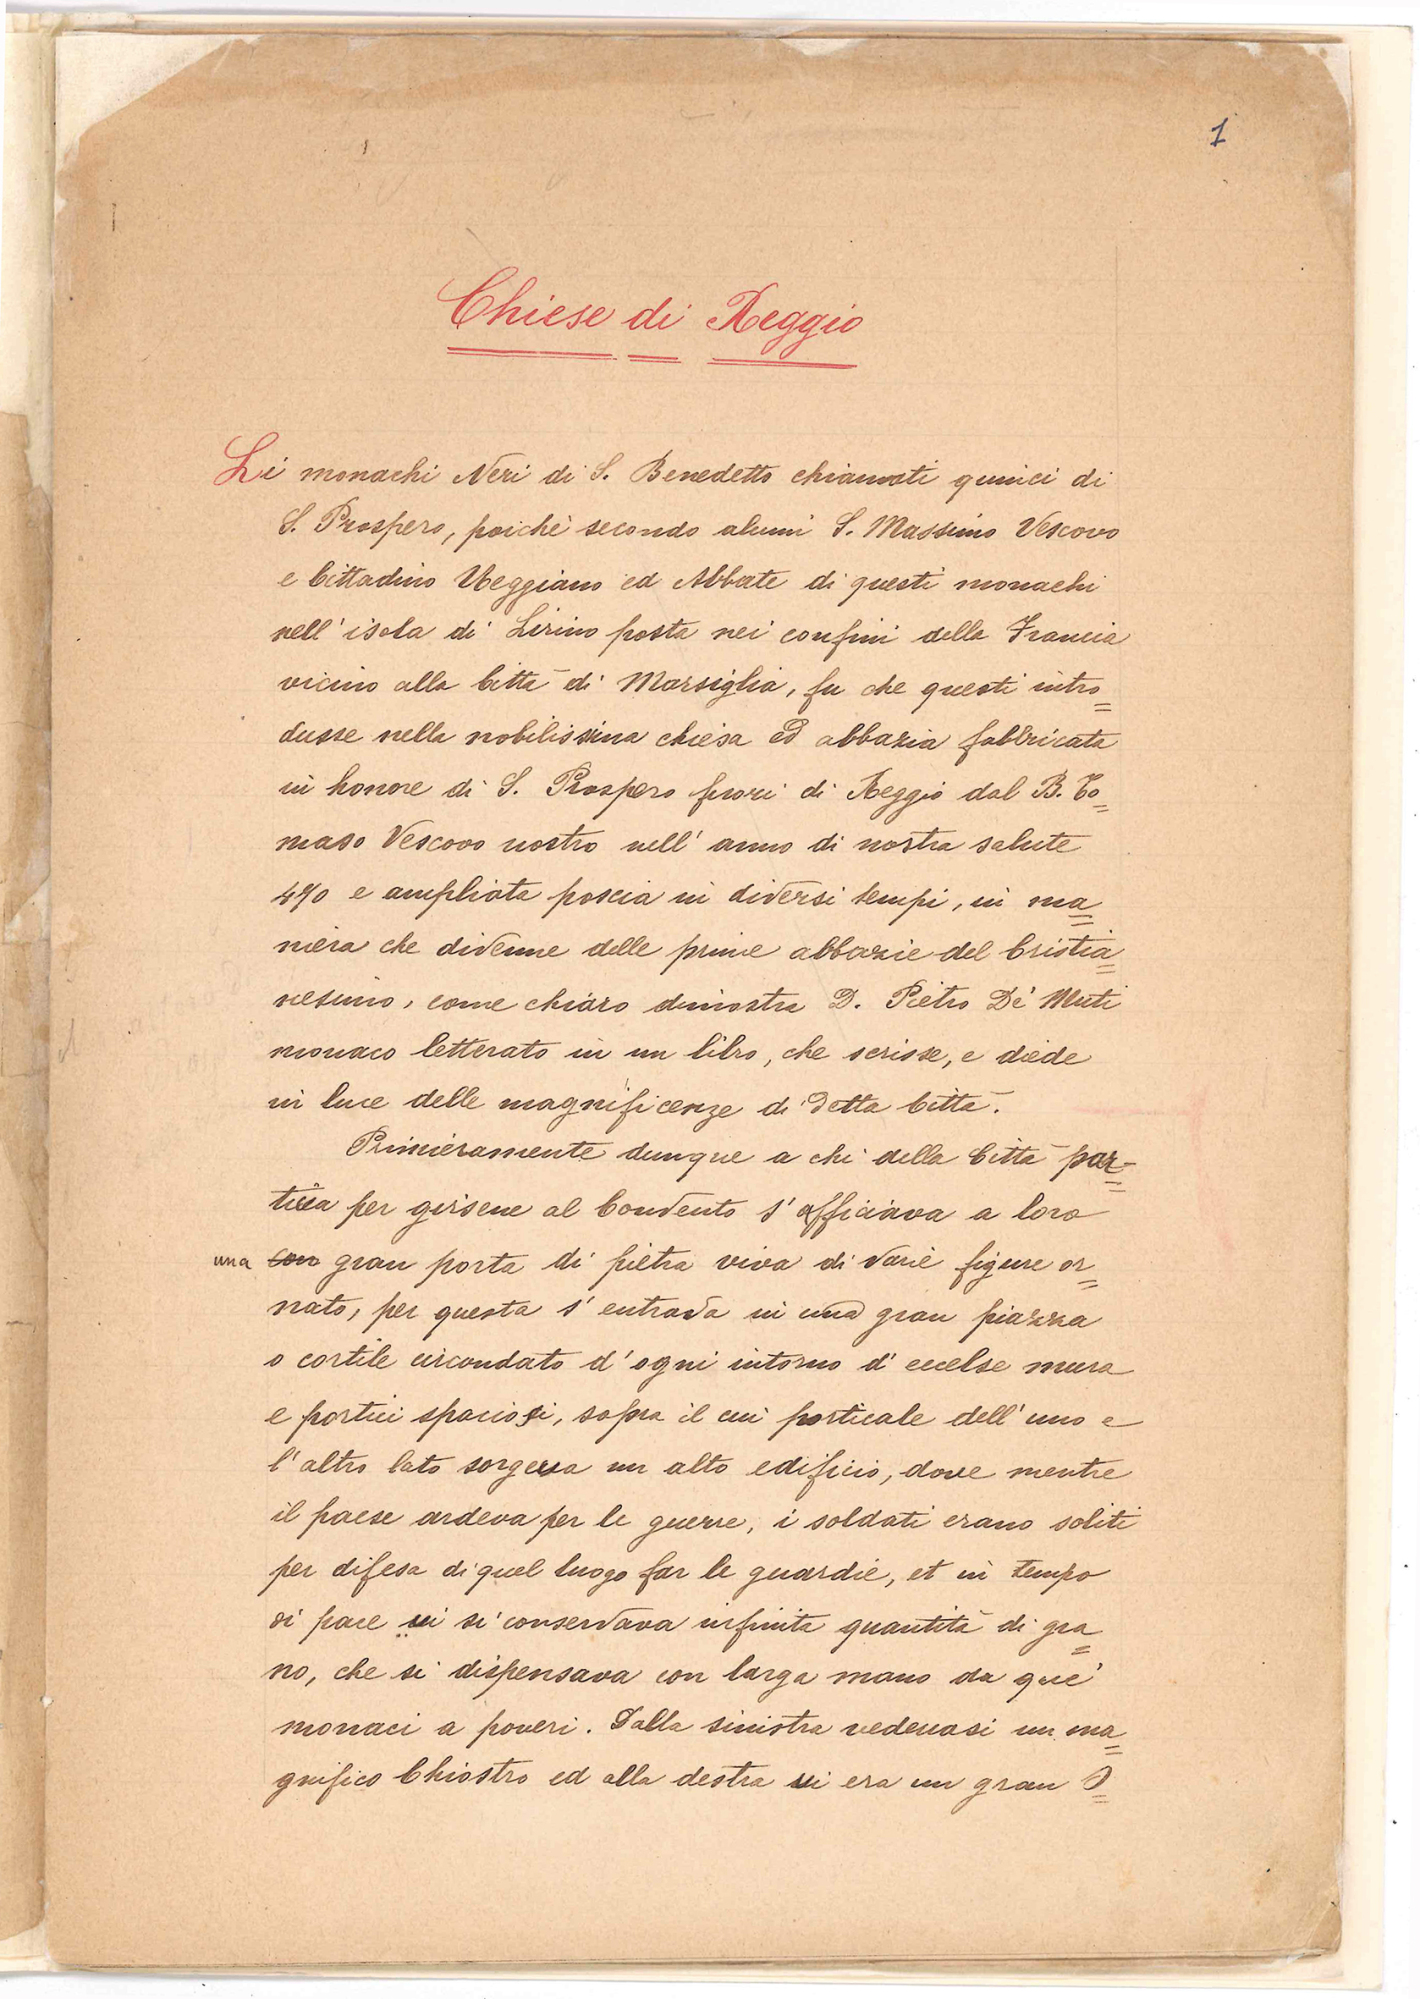 1
Chiese di Reggio
Li monachi Neri di S. Benedetto chiamati quinci di
S. Prospero, poichè secondo alumi S. Massimo Vescovo
e Cittadino Reggiano ed Abbate di questi monachi
nell' isola di Lirino posta nei confini della Francia
vicino alla Città di Marsiglia, fu che questi intro=
dusse nella nobilissima chiesa ed abbazia fabbricata
in honore di S. Prospero fuori di Reggio dal B. To=
maso Vescovo nostro nell' anno di nostra salute
470 e ampliata poscia in diversi tempi, in ma=
niera che divenne delle prime abbazie del Cristia=
nesimo, come chiaro dimostra D. Pietro De' Muti
monaco letterato in un libro, che scrisse, e diede
in luce delle magnificenze di detta Città.
Primieramente dunque a chi della Città par=
tiva per girsene al Convento s' offriciava a loro
una con gran porta di pietra viva di varie figure or=
nato, per questa s' entrava in una gran piazza
o cortile circondato d' ogni intorno d' eccelse mura
e portici spaciosi, sopra il cui porticale dell' uno e
l' altro lato sorgeva un alto edificio, dove mentre
il paese ardeva per le guerre, i soldati erano soliti
per difesa di quel luogo far le guardie, et in tempo
di pace vi si conservava infinita quantità di gra=
no, che si dispensava con larga mano da que'
monaci a poveri. Dalla sinistra vedevasi un ma=
gnifico Chiostro ed alla destra vi era un gran O=